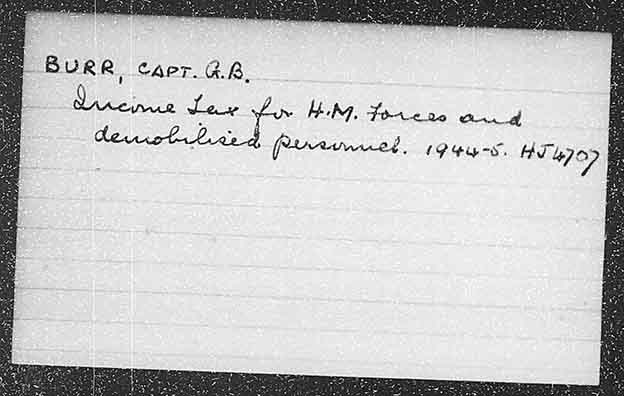 BURR, CAPT. G.B.
Income Tax for H.M. Forces and
demobilised personnel. 1944-5. HJ4707